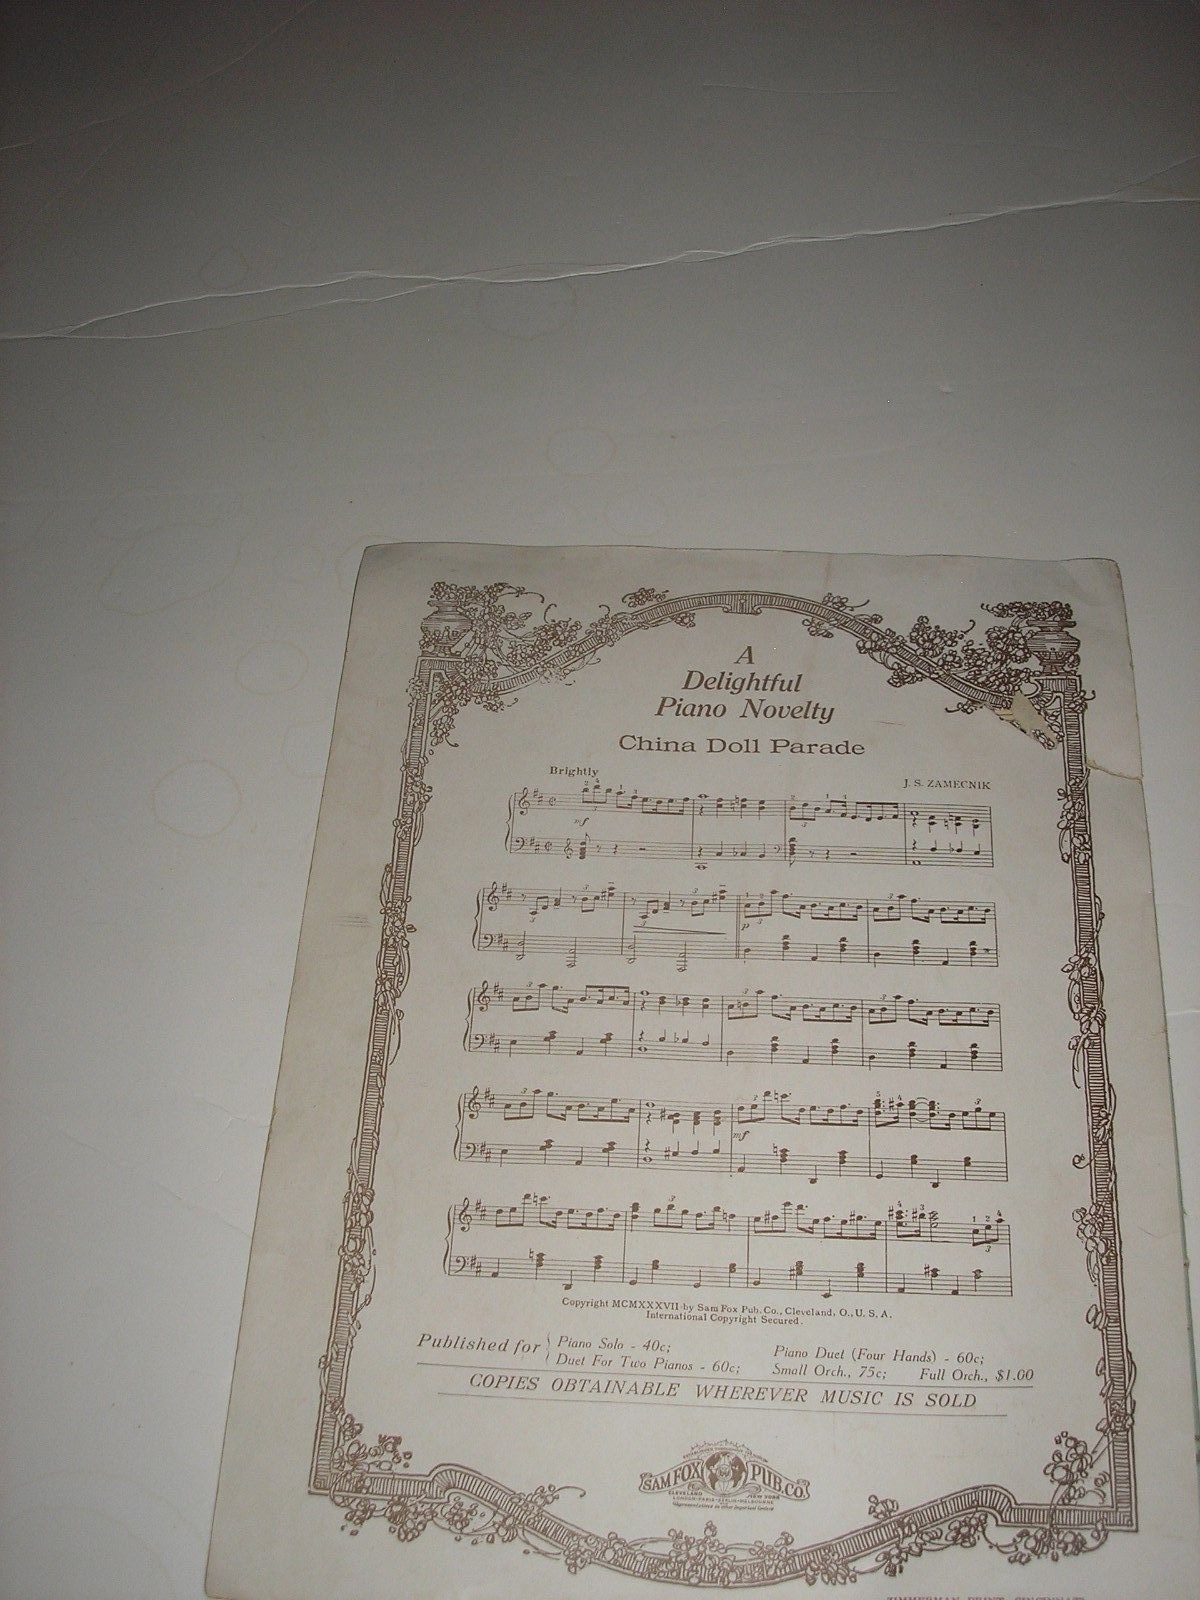 A
Delightful
Piano Novelty
China Doll Parade
Brightly
J. S. ZAMECNIK
mf
p
mf
Copyright MCMXXXVII by Sam Fox Pub. Co., Cleveland, O., U. S. A.
International Copyright Secured.
Published for { Piano Solo - 40c; Piano Duet (Four Hands) - 60c;
Duet For Two Pianos - 60c; Small Orch., 75c; Full Orch., $1.00
COPIES OBTAINABLE WHEREVER MUSIC IS SOLD
SAM FOX PUB. CO.
CLEVELAND NEW YORK
LONDON-PARIS-BERLIN-MELBOURNE
Representatives in other Important Centers
ZIMMERMAN PRINT, CINCINNATI